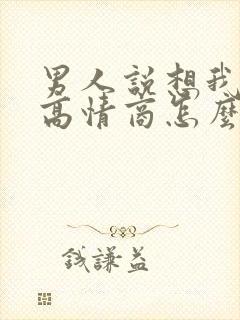 男人說想我
高情商怎麼
錢謙益